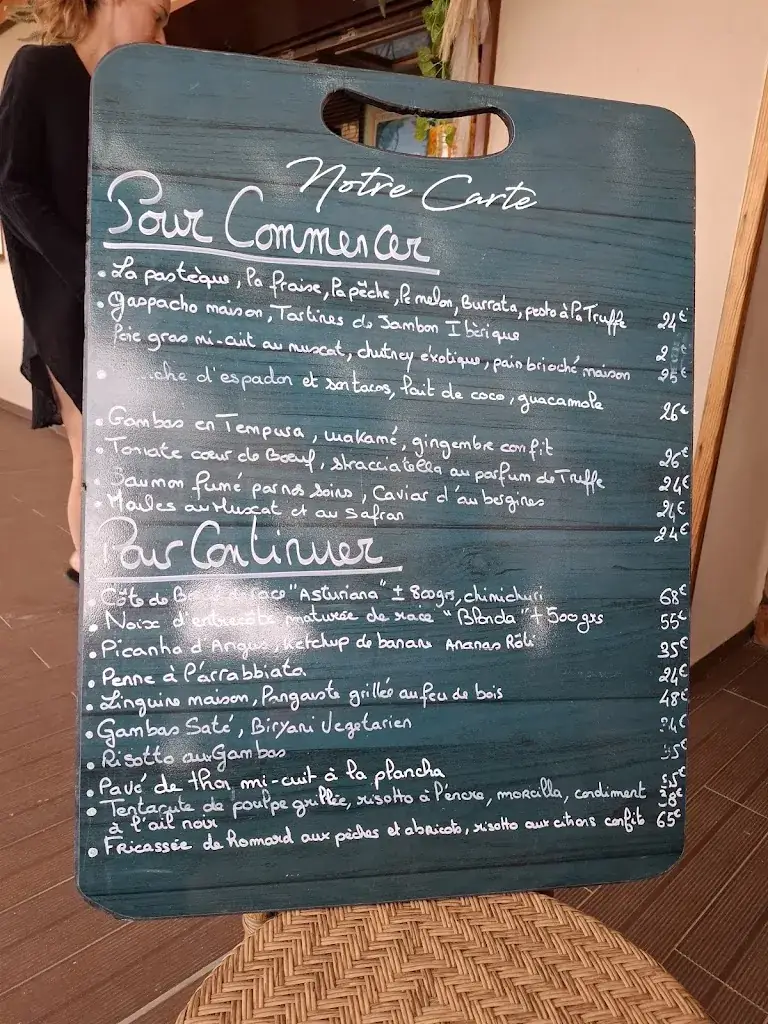 Notre Carte
Pour Commencer
• La pastèque, la fraise, la pêche, le melon, Burrata, pesto à la Truffe 24€
• Gaspacho maison, Tartines de Jambon Ibèrique
Foie gras mi-cuit au muscat, chutney éxotique, pain brioché maison 25€
• d'espadon et son tacos, lait de coco, guacamole 26€
• Gambas en Tempura, wakamé, gingembre confit 26€
• Tomate cœur de Bœuf, stracciatella au parfum de Truffe 24€
• Saumon fumé par nos soins, Caviar d'aubergines 24€
• Moules au Muscat et au safran 24€
Pour Continuer
• Côte de race "Asturiana" ± 800grs, chimichuri 68€
• Noix d'entrecôte maturée de race "Blonda" + 500grs 55€
• Picanha d'Angus, ketchup de banane Ananas Rôti 35€
• Penne à l'arrabbiata 24€
• Linguine maison, langouste grillée au feu de bois 48€
• Gambas Saté, Biryani Vegetarien
• Risotto aux Gambas 35€
• Pavé de thon mi-cuit à la plancha
• Tentacule de poulpe grillée, risotto à l'encre, morcilla, condiment 38€
à l'ail noir
• Fricassée de homard aux pêches et abricots, risotto aux citrons confits 65€